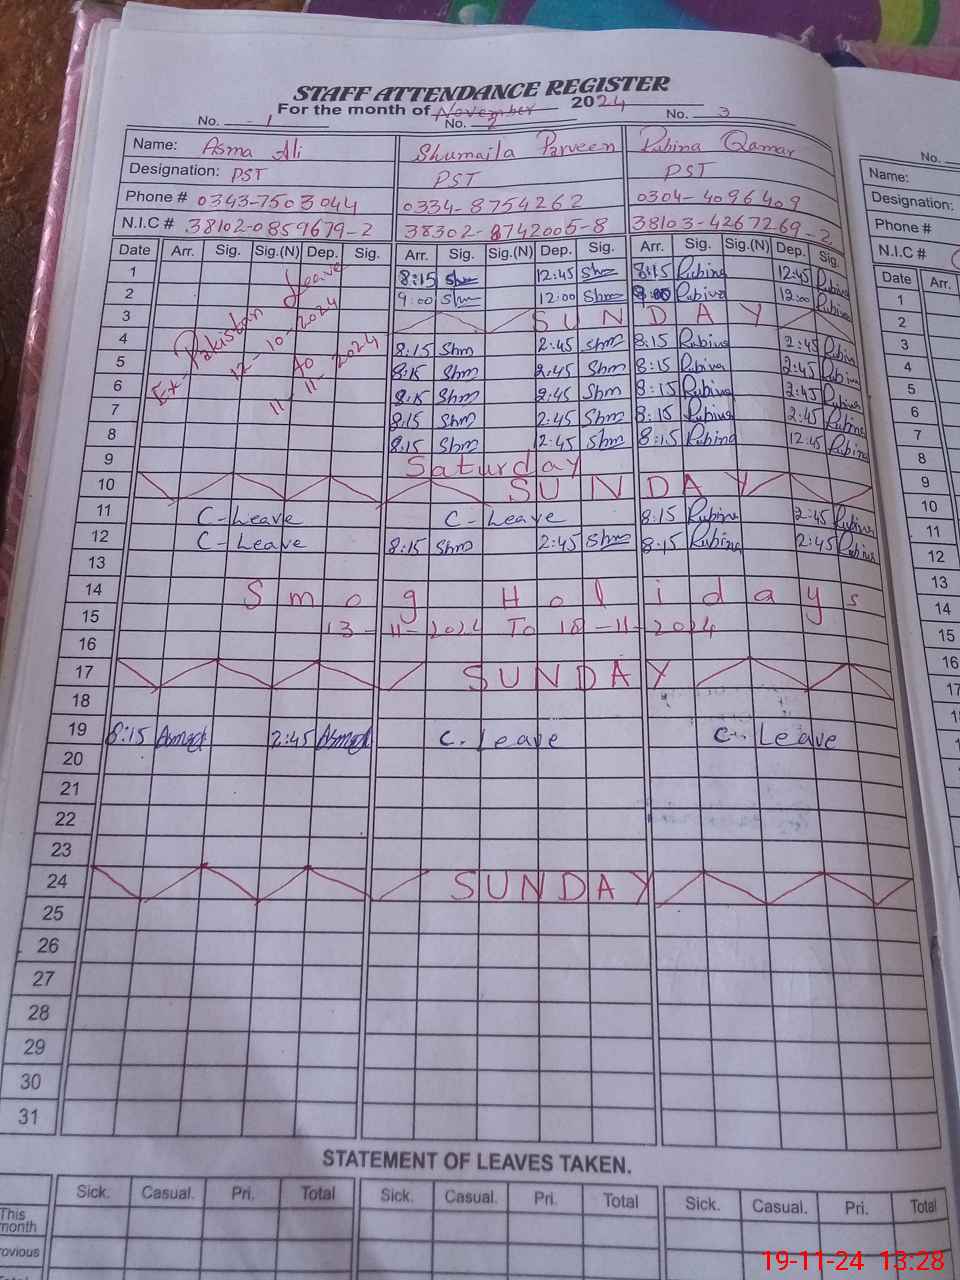 STAFF ATTENDANCE REGISTER
For the month of November 2024
No. 1 No. 2 No. 3
Name: Asma Ali Shumaila Parveen Rubina Qamar
Designation: PST PST PST
Phone # 0343-7503044 0334-8754262 0304-4096409
N.I.C # 38102-0859679-2 38302-8742005-8 38103-4267269-2
Date Arr. Sig. Sig.(N) Dep. Sig. Arr. Sig. Sig.(N) Dep. Sig. Arr. Sig. Sig.(N) Dep. Sig.
1 8:15 Shm 12:45 Shm 8:15 Rubina 12:45 Rubina
2 9:00 Shm 12:00 Shm 9:00 Rubina 12:00 Rubina
3 SUNDAY
4 8:15 Shm 2:45 Shm 8:15 Rubina 2:45 Rubina
5 8:15 Shm 2:45 Shm 8:15 Rubina 2:45 Rubina
6 8:15 Shm 2:45 Shm 8:15 Rubina 2:45 Rubina
7 8:15 Shm 2:45 Shm 8:15 Rubina 2:45 Rubina
8 8:15 Shm 2:45 Shm 8:15 Rubina 12:45 Rubina
Ex-Pakistan Leave
12-10-2024
to
11-11-2024
9 Saturday
10 SUNDAY
11 C-Leave C-Leave 8:15 Rubina 2:45 Rubina
12 C-Leave 8:15 Shm 2:45 Shm 8:15 Rubina 2:45 Rubina
13
14 Smog Holidays
15 13-11-2024 To 18-11-2024
16
17 SUNDAY
18
19 8:15 2:45 C-Leave C-Leave
20
21
22
23
24 SUNDAY
25
26
27
28
29
30
31
STATEMENT OF LEAVES TAKEN.
Sick. Casual. Pri. Total Sick. Casual. Pri. Total Sick. Casual. Pri. Total
This
month
No.
Name:
Designation:
Phone #
N.I.C #
Date Arr.
1
2
3
4
5
6
7
8
9
10
11
12
13
14
15
16
19-11-24 13:28